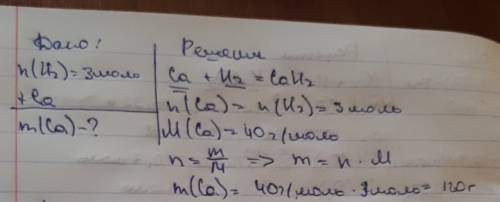 Дано:
n(H₂)=3моль
+Ca
m(Ca)-?
Решение
Ca + H₂ = CaH₂
n(Ca) = n(H₂) = 3 моль
M(Ca) = 40г/моль
n = m/M => m = n · M
m(Ca) = 40г/моль · 3моль = 120г